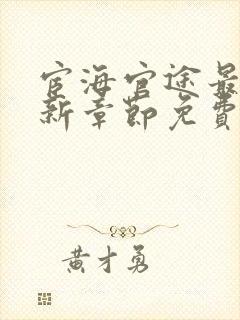 宦海官途最
新章節免費
黄才勇